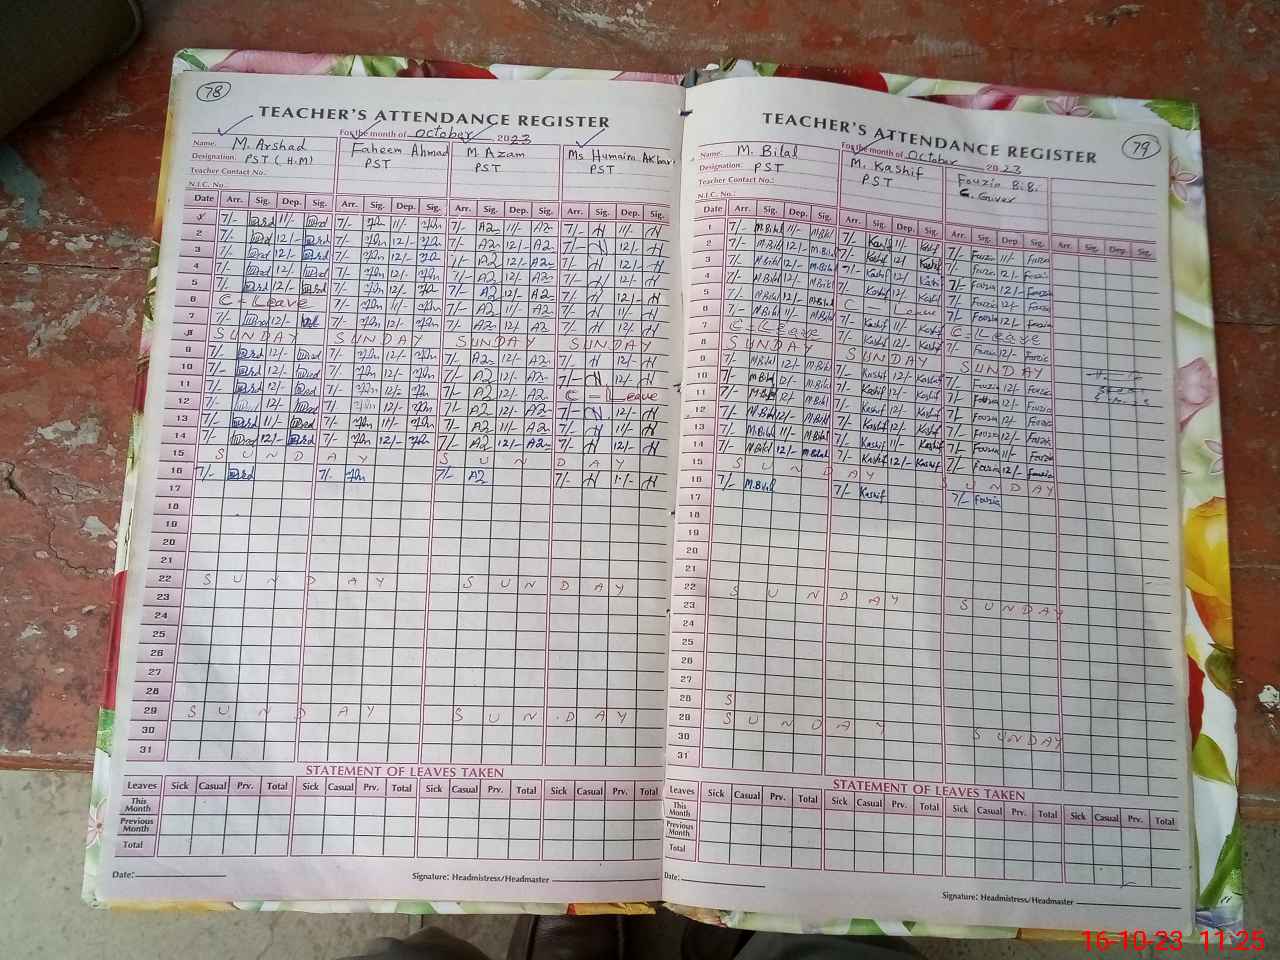 78
TEACHER'S ATTENDANCE REGISTER
For the month of October 2023
Name: M. Arshad Faheem Ahmad M. Azam Ms Humaira Akbar
Designation: PST (H.M) PST PST PST
Teacher Contact No.:
N.I.C. No.:
Date Arr. Sig. Dep. Sig. Arr. Sig. Dep. Sig. Arr. Sig. Dep. Sig. Arr. Sig. Dep. Sig.
1 7/- 11/- 7/- 11/- 7/- A2 11/- A2 7/- H 11/- H
2 7/- 12/- 7/- 12/- 7/- A2 12/- A2 7/- H 12/- H
3 7/- 12/- 7/- 12/- 7/- A2 12/- A2 7/- H 12/- H
4 7/- 12/- 7/- 12/- 7/- A2 12/- A2 7/- H 12/- H
5 7/- 12/- 7/- 12/- 7/- A2 12/- A2 7/- H 12/- H
6 C - Leave 7/- 11/- 7/- A2 11/- A2 7/- H 11/- H
7 7/- 12/- 7/- 12/- 7/- A2 12/- A2 7/- H 12/- H
8 SUNDAY SUNDAY SUNDAY SUNDAY
9 7/- 12/- 7/- 12/- 7/- A2 12/- A2 7/- H 12/- H
10 7/- 12/- 7/- 12/- 7/- A2 12/- A2 7/- H 12/- H
11 7/- 12/- 7/- 12/- 7/- A2 12/- A2 C - Leave
12 7/- 12/- 7/- 12/- 7/- A2 12/- A2 7/- H 12/- H
13 7/- 11/- 7/- 11/- 7/- A2 11/- A2 7/- H 11/- H
14 7/- 12/- 7/- 12/- 7/- A2 12/- A2 7/- H 12/- H
15 SUNDAY SUNDAY
16 7/- 7/- 7/- A2 7/- H H
17
18
19
20
21
22 SUNDAY SUNDAY
23
24
25
26
27
28
29 SUNDAY SUNDAY
30
31
STATEMENT OF LEAVES TAKEN
Leaves Sick Casual Prv. Total Sick Casual Prv. Total Sick Casual Prv. Total Sick Casual Prv. Total
This Month
Previous Month
Total
Date:
Signature: Headmistress/Headmaster
79
TEACHER'S ATTENDANCE REGISTER
For the month of October 2023
Name: M. Bilal M. Kashif Fouzia B.B.
Designation: PST PST C. Giver
Teacher Contact No.:
N.I.C. No.:
Date Arr. Sig. Dep. Sig. Arr. Sig. Dep. Sig. Arr. Sig. Dep. Sig. Arr. Sig. Dep. Sig.
1 7/- M.Bilal 11/- M.Bilal 7/- Kashif 11/- Kashif 7/- Fouzia 11/- Fouzia
2 7/- M.Bilal 12/- M.Bilal 7/- Kashif 12/- Kashif 7/- Fouzia 12/- Fouzia
3 7/- M.Bilal 12/- M.Bilal 7/- Kashif 12/- Kashif 7/- Fouzia 12/- Fouzia
4 7/- M.Bilal 12/- M.Bilal 7/- Kashif 12/- Kashif 7/- Fouzia 12/- Fouzia
5 7/- M.Bilal 12/- M.Bilal C Leave 7/- Fouzia 12/- Fouzia
6 7/- M.Bilal 11/- M.Bilal 7/- Kashif 11/- Kashif C - Leave
7 C - Leave 7/- Kashif 12/- Kashif 7/- Fouzia 12/- Fouzia
8 SUNDAY SUNDAY SUNDAY
9 7/- M.Bilal 12/- M.Bilal 7/- Kashif 12/- Kashif 7/- Fouzia 12/- Fouzia
10 7/- M.Bilal 12/- M.Bilal 7/- Kashif 12/- Kashif 7/- Fouzia 12/- Fouzia
11 7/- M.Bilal 12/- M.Bilal 7/- Kashif 12/- Kashif 7/- Fouzia 12/- Fouzia
12 7/- M.Bilal 12/- M.Bilal 7/- Kashif 12/- Kashif 7/- Fouzia 12/- Fouzia
13 7/- M.Bilal 11/- M.Bilal 7/- Kashif 11/- Kashif 7/- Fouzia 11/- Fouzia
14 7/- M.Bilal 12/- M.Bilal 7/- Kashif 12/- Kashif 7/- Fouzia 12/- Fouzia
15 SUNDAY SUNDAY
16 7/- M.Bilal 7/- Kashif 7/- Fouzia
17
18
19
20
21
22 SUNDAY SUNDAY
23
24
25
26
27
28 S
29 SUNDAY SUNDAY
30
31
STATEMENT OF LEAVES TAKEN
Leaves Sick Casual Prv. Total Sick Casual Prv. Total Sick Casual Prv. Total Sick Casual Prv. Total
This Month
Previous Month
Total
Date:
Signature: Headmistress/Headmaster
16-10-23 11:25